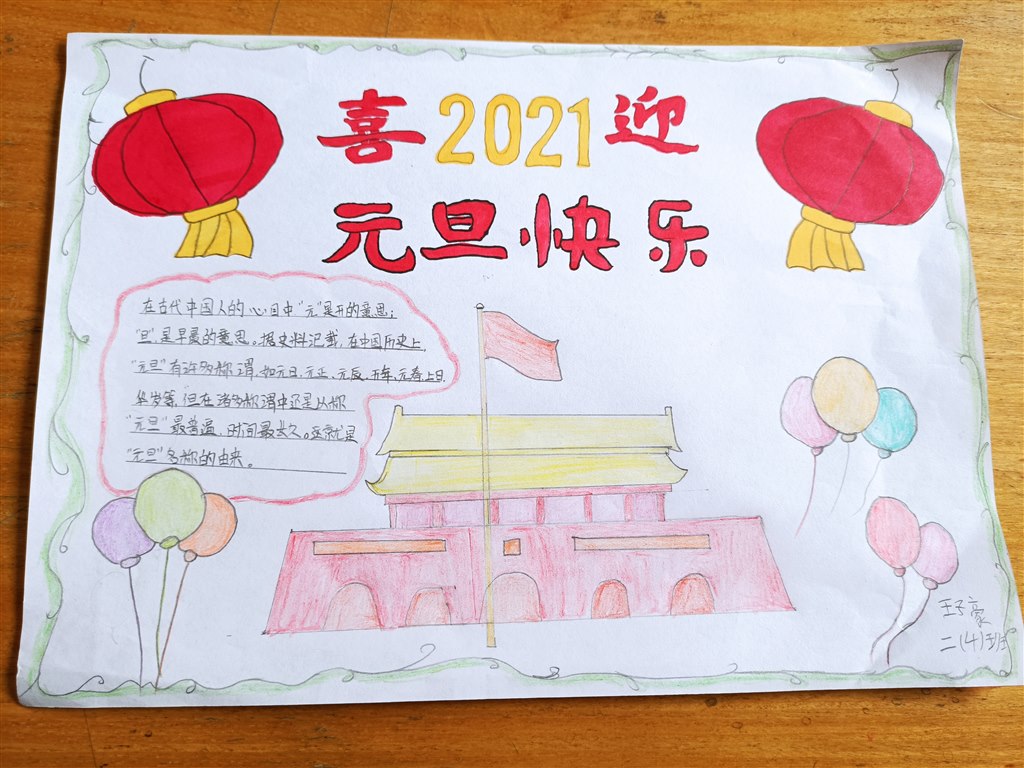 喜2021迎
元旦快乐
在古代中国人的心目中“元”是开的意思；
“旦”是早晨的意思。据史料记载，在中国历史上，
“元旦”有许多称谓，如元日、元正、元辰、开年、元春、上日、
华岁等，但在诸多称谓中还是以称
“元旦”最普遍，时间最长久。这就是
“元旦”名称的由来。
王子豪
二(4)班